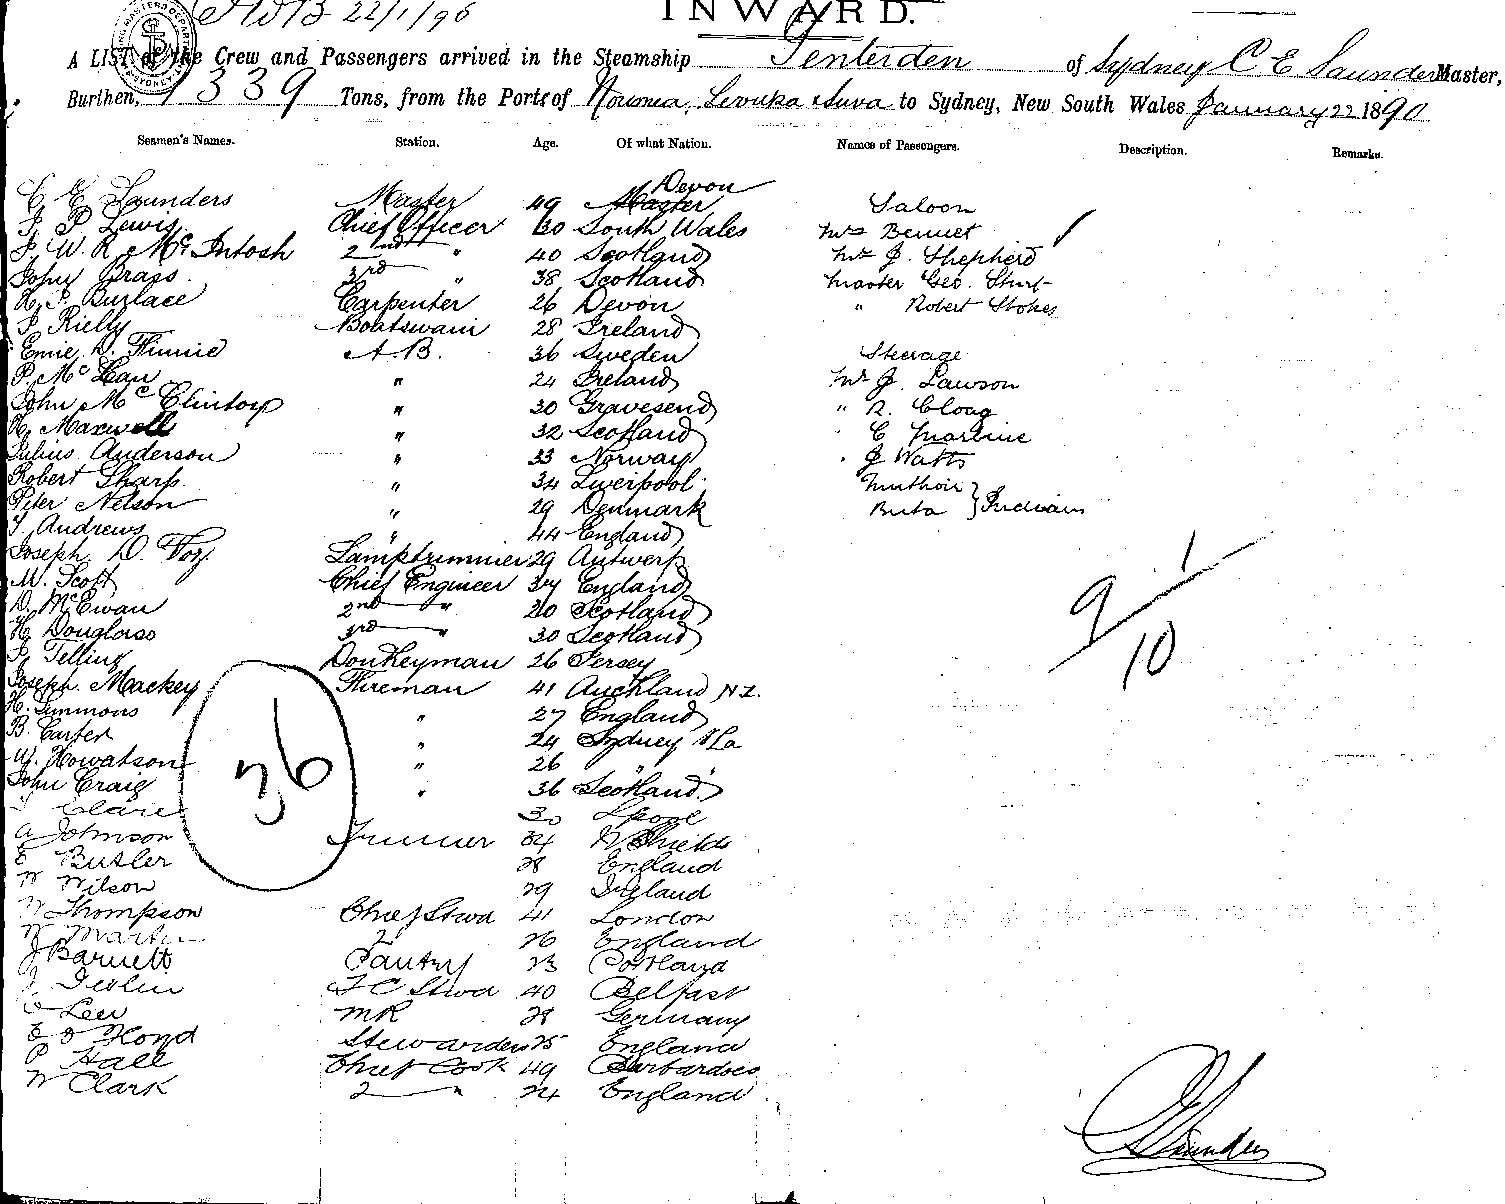 22/1/90
INWARD.
A LIST of the Crew and Passengers arrived in the Steamship Tenterden of Sydney C E Saunders Master,
Burthen, 1339 Tons, from the Ports of Noumea, Levuka & Suva to Sydney, New South Wales January 22 1890
Seamen's Names. Station. Age. Of what Nation. Names of Passengers. Description. Remarks.
C E Saunders Master 49 Master Devon Saloon
J P Lewis Chief Officer 30 South Wales Mrs Bennet
J. W. R. McIntosh 2nd " 40 Scotland Mr J. Shepherd
John Brass 3rd " 38 Scotland Master Geo. Sturt
H. P. Burlace Carpenter 26 Devon " Robert Stokes
P. Rielly Boatswain 28 Ireland
Ernie D. Finnie A.B. 36 Sweden Steerage
P. McLan " 24 Ireland Mr J. Lawson
John McClintorp " 30 Gravesend " R. Cloag
H. Maxwell " 32 Scotland " C Martine
Julius Anderson " 33 Norway " J Watts
Robert Sharp " 34 Liverpool Muthoir
Peter Nelson " 29 Denmark Buta } Indians
T Andrews " 44 England
Joseph D. Voy Lamptrimmer 29 Antwerp
M. Scott Chief Engineer 34 England
D. McEwan 2nd " 20 Scotland
H. Douglass 3rd " 30 Scotland
P. Telling Donkeyman 26 Jersey
Joseph Mackey Fireman 41 Auckland N.Z.
H. Simmons " 27 England
B. Carter " 24 Sydney
W. Howatson " 26 "
John Craig " 36 Scotland
Clare 30 Lpool
A Johnson Trimmer 24 N Shields
E Butler 28 England
W Wilson 29 England
W Thompson Chief Stwd 41 London
W Martin 2 26 England
J Barnett Pantry 23 Portland
J. Devlin F C Stwd 40 Belfast
C Lee MR 28 Germany
E D Hond Stewardess 25 England
P Hall Chief Cook 49 Barbardoes
W Clark 2 " 24 England
36
9/10
C E Saunders